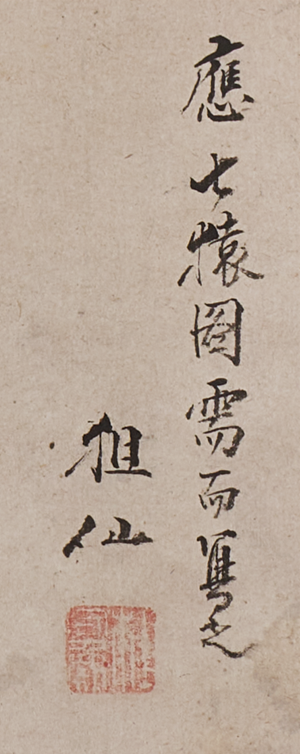 應七猿圖需而寫之
狙仙